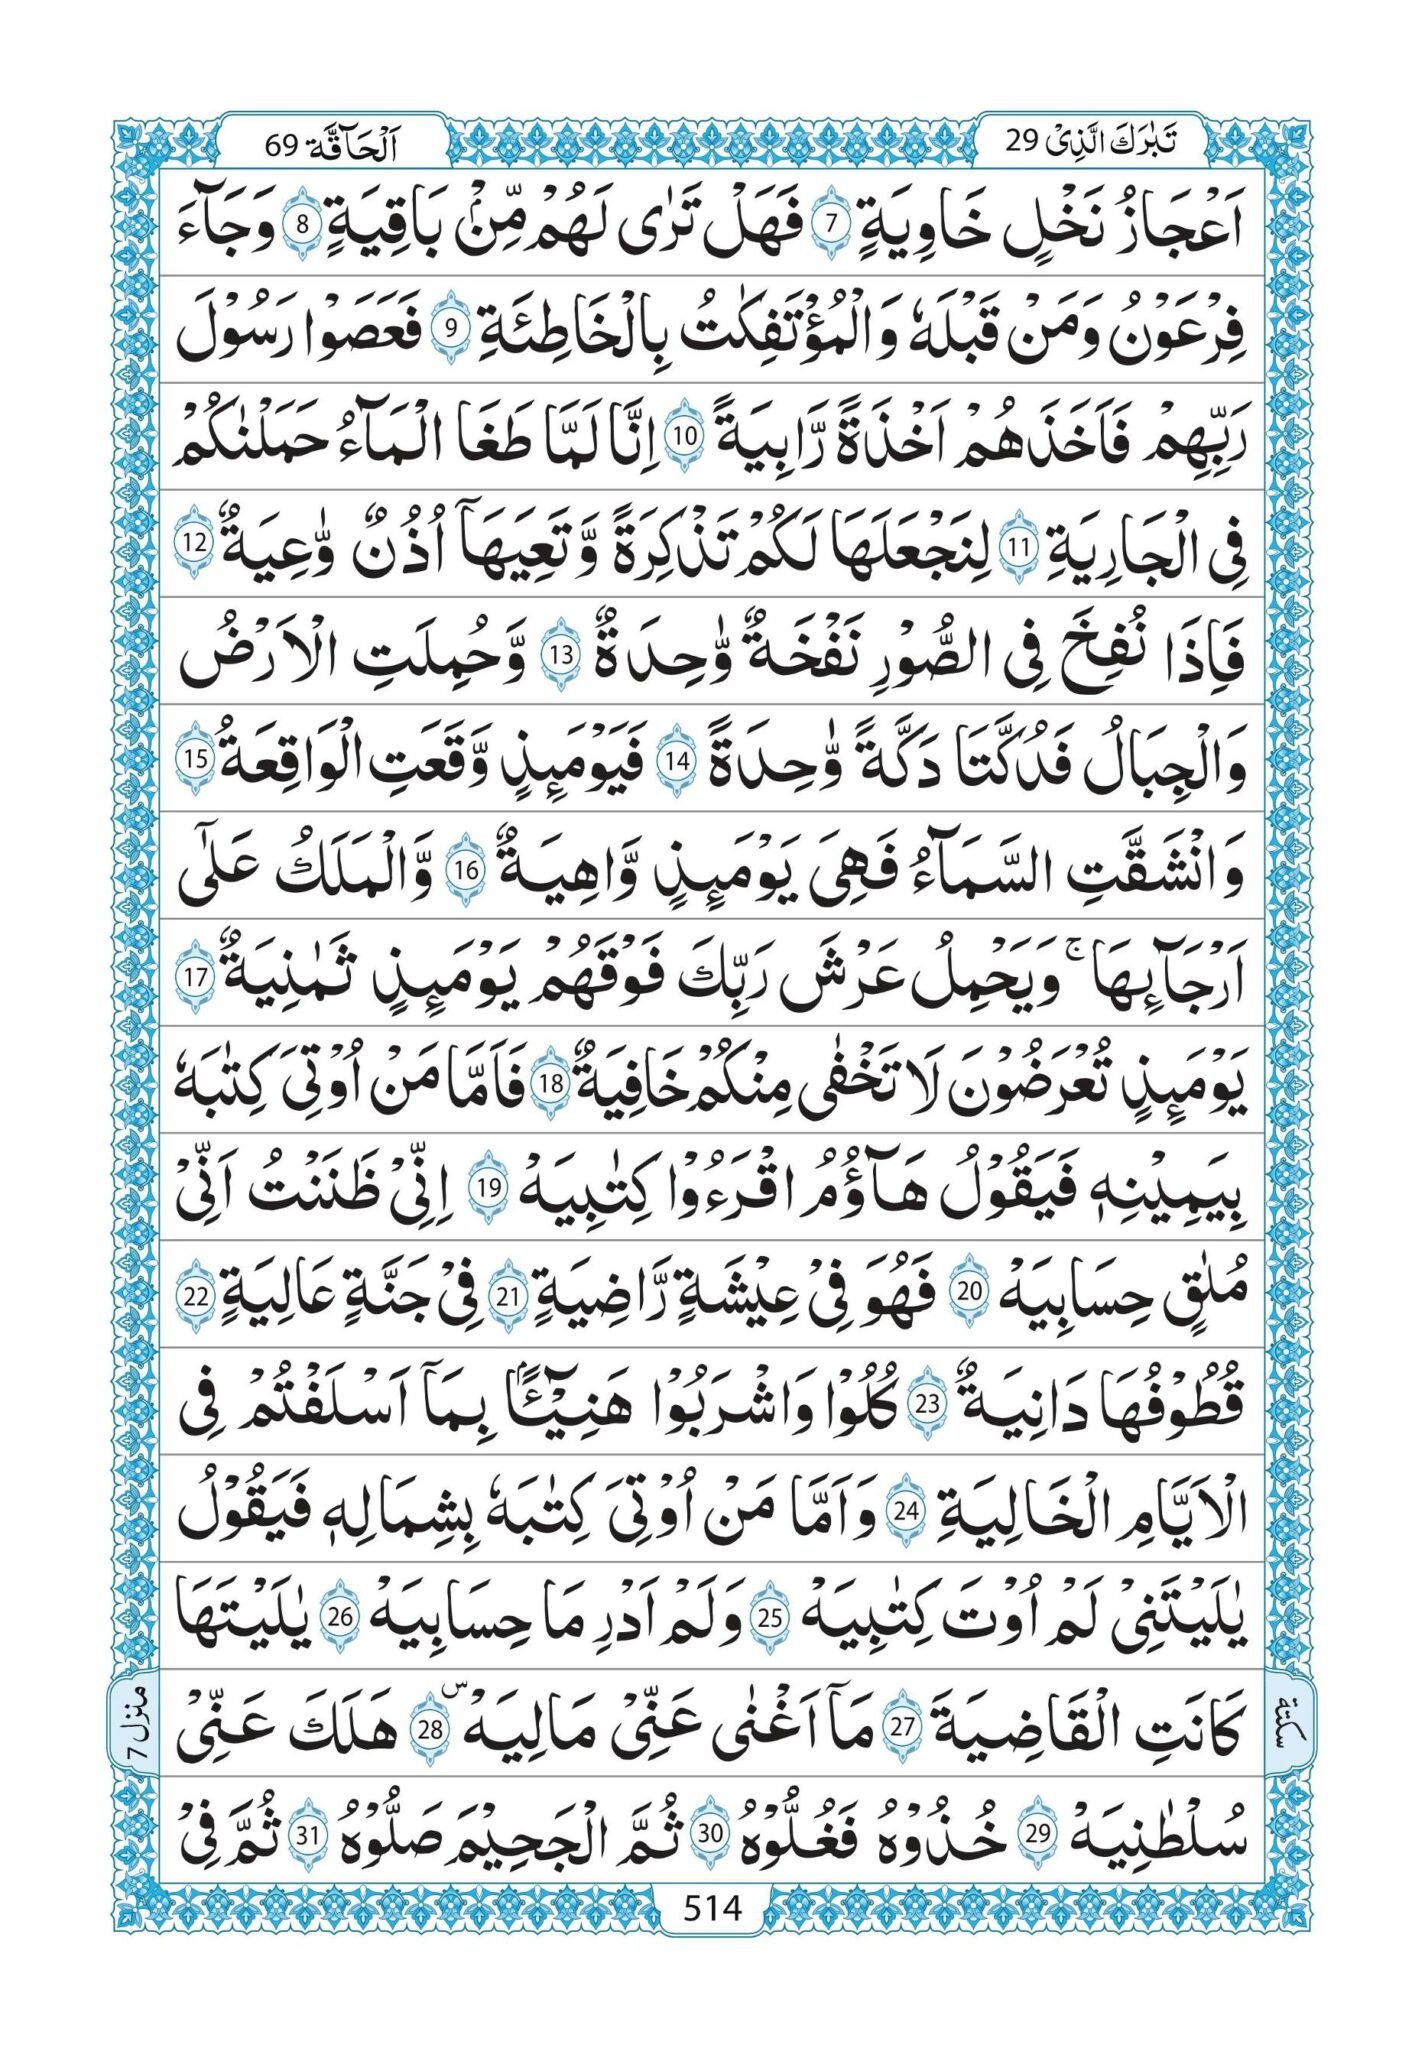 تَبٰرَكَ الَّذِىْ 29
اَلْحَآقَّة 69
اَعْجَازُ نَخْلٍ خَاوِيَةٍ 7 فَهَلْ تَرٰى لَهُمْ مِّنْۢ بَاقِيَةٍ 8 وَجَآءَ
فِرْعَوْنُ وَمَنْ قَبْلَهٗ وَالْمُؤْتَفِكٰتُ بِالْخَاطِئَةِ 9 فَعَصَوْا رَسُوْلَ
رَبِّهِمْ فَاَخَذَهُمْ اَخْذَةً رَّابِيَةً 10 اِنَّا لَمَّا طَغَا الْمَآءُ حَمَلْنٰكُمْ
فِى الْجَارِيَةِ 11 لِنَجْعَلَهَا لَكُمْ تَذْكِرَةً وَّتَعِيَهَآ اُذُنٌ وَّاعِيَةٌ 12
فَاِذَا نُفِخَ فِى الصُّوْرِ نَفْخَةٌ وَّاحِدَةٌ 13 وَّحُمِلَتِ الْاَرْضُ
وَالْجِبَالُ فَدُكَّتَا دَكَّةً وَّاحِدَةً 14 فَيَوْمَئِذٍ وَّقَعَتِ الْوَاقِعَةُ 15
وَانْشَقَّتِ السَّمَآءُ فَهِىَ يَوْمَئِذٍ وَّاهِيَةٌ 16 وَّالْمَلَكُ عَلٰٓى
اَرْجَآئِهَا ۚ وَيَحْمِلُ عَرْشَ رَبِّكَ فَوْقَهُمْ يَوْمَئِذٍ ثَمٰنِيَةٌ 17
يَوْمَئِذٍ تُعْرَضُوْنَ لَا تَخْفٰى مِنْكُمْ خَافِيَةٌ 18 فَاَمَّا مَنْ اُوْتِىَ كِتٰبَهٗ
بِيَمِيْنِهٖ فَيَقُوْلُ هَآؤُمُ اقْرَءُوْا كِتٰبِيَهْ 19 اِنِّىْ ظَنَنْتُ اَنِّىْ
مُلٰقٍ حِسَابِيَهْ 20 فَهُوَ فِىْ عِيْشَةٍ رَّاضِيَةٍ 21 فِىْ جَنَّةٍ عَالِيَةٍ 22
قُطُوْفُهَا دَانِيَةٌ 23 كُلُوْا وَاشْرَبُوْا هَنِيْٓـًٔاۢ بِمَآ اَسْلَفْتُمْ فِى
الْاَيَّامِ الْخَالِيَةِ 24 وَاَمَّا مَنْ اُوْتِىَ كِتٰبَهٗ بِشِمَالِهٖ فَيَقُوْلُ
يٰلَيْتَنِىْ لَمْ اُوْتَ كِتٰبِيَهْ 25 وَلَمْ اَدْرِ مَا حِسَابِيَهْ 26 يٰلَيْتَهَا
كَانَتِ الْقَاضِيَةَ 27 مَآ اَغْنٰى عَنِّىْ مَالِيَهْ ۜ 28 هَلَكَ عَنِّىْ
سُلْطٰنِيَهْ 29 خُذُوْهُ فَغُلُّوْهُ 30 ثُمَّ الْجَحِيْمَ صَلُّوْهُ 31 ثُمَّ فِىْ
سكتة
منزل 7
514